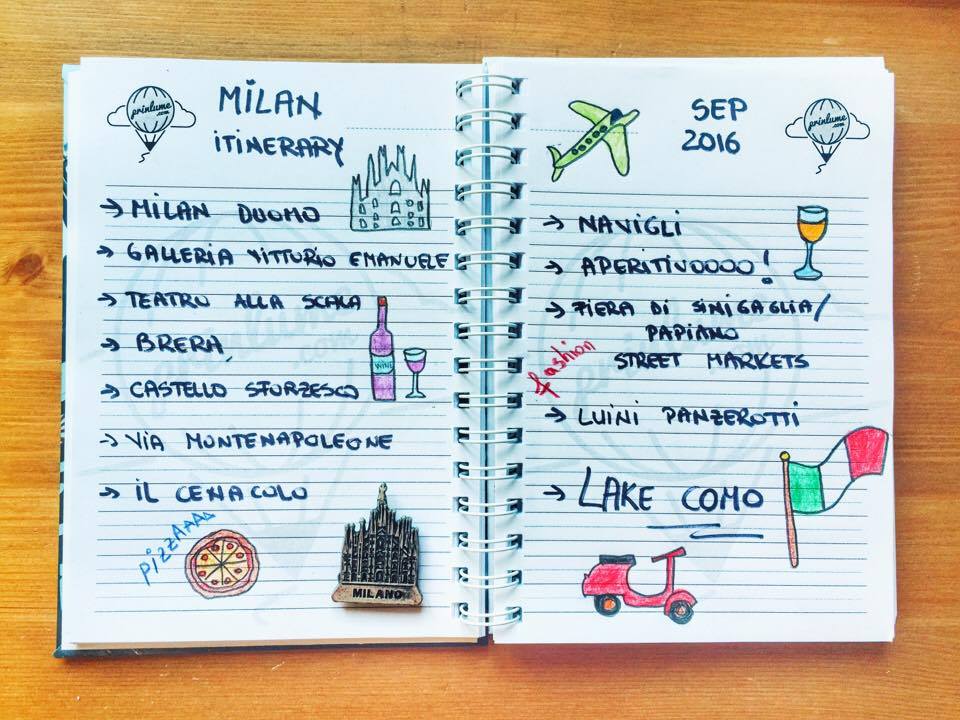 printume
.com
MILAN
ITINERARY
→ MILAN DUOMO
→ GALLERIA VITTORIO EMANUELE
→ TEATRO ALLA SCALA
→ BRERA
WINE
→ CASTELLO SFORZESCO
→ VIA MONTENAPOLEONE
→ IL CENACOLO
PIZZAAAA
MILANO
SEP
2016
printume
.com
→ NAVIGLI
→ APERITIVOOOO!
→ FIERA DI SINIGAGLIA/
PAPIANO
STREET MARKETS
fashion
→ LUINI PANZEROTTI
→ LAKE COMO